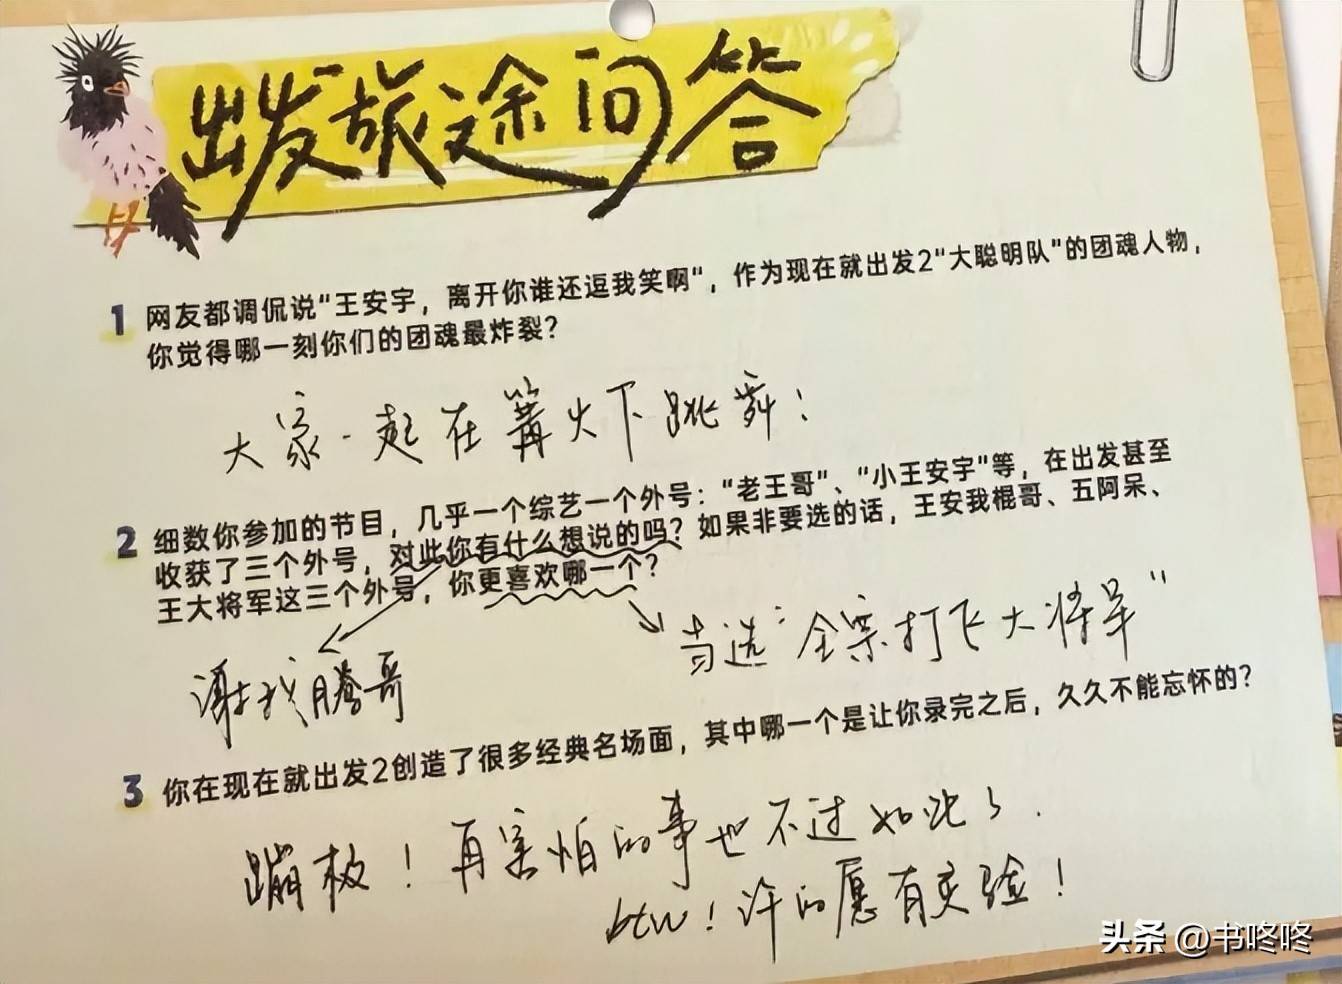 出发旅途问答
1 网友都调侃说"王安宇，离开你谁还逗我笑啊"，作为现在就出发2"大聪明队"的团魂人物，
你觉得哪一刻你们的团魂最炸裂？
大家一起在篝火下跳舞！
2 细数你参加的节目，几乎一个综艺一个外号："老王哥"、"小王安宇"等，在出发甚至
收获了三个外号，对此你有什么想说的吗？如果非要选的话，王安我棍哥、五阿呆、
王大将军这三个外号，你更喜欢哪一个？
当选"全票打飞大将军"
谢我腾哥
3 你在现在就出发2创造了很多经典名场面，其中哪一个是让你录完之后，久久不能忘怀的？
蹦极！再害怕的事也不过如此了.
btw！许的愿有灵验！
头条 @书咚咚